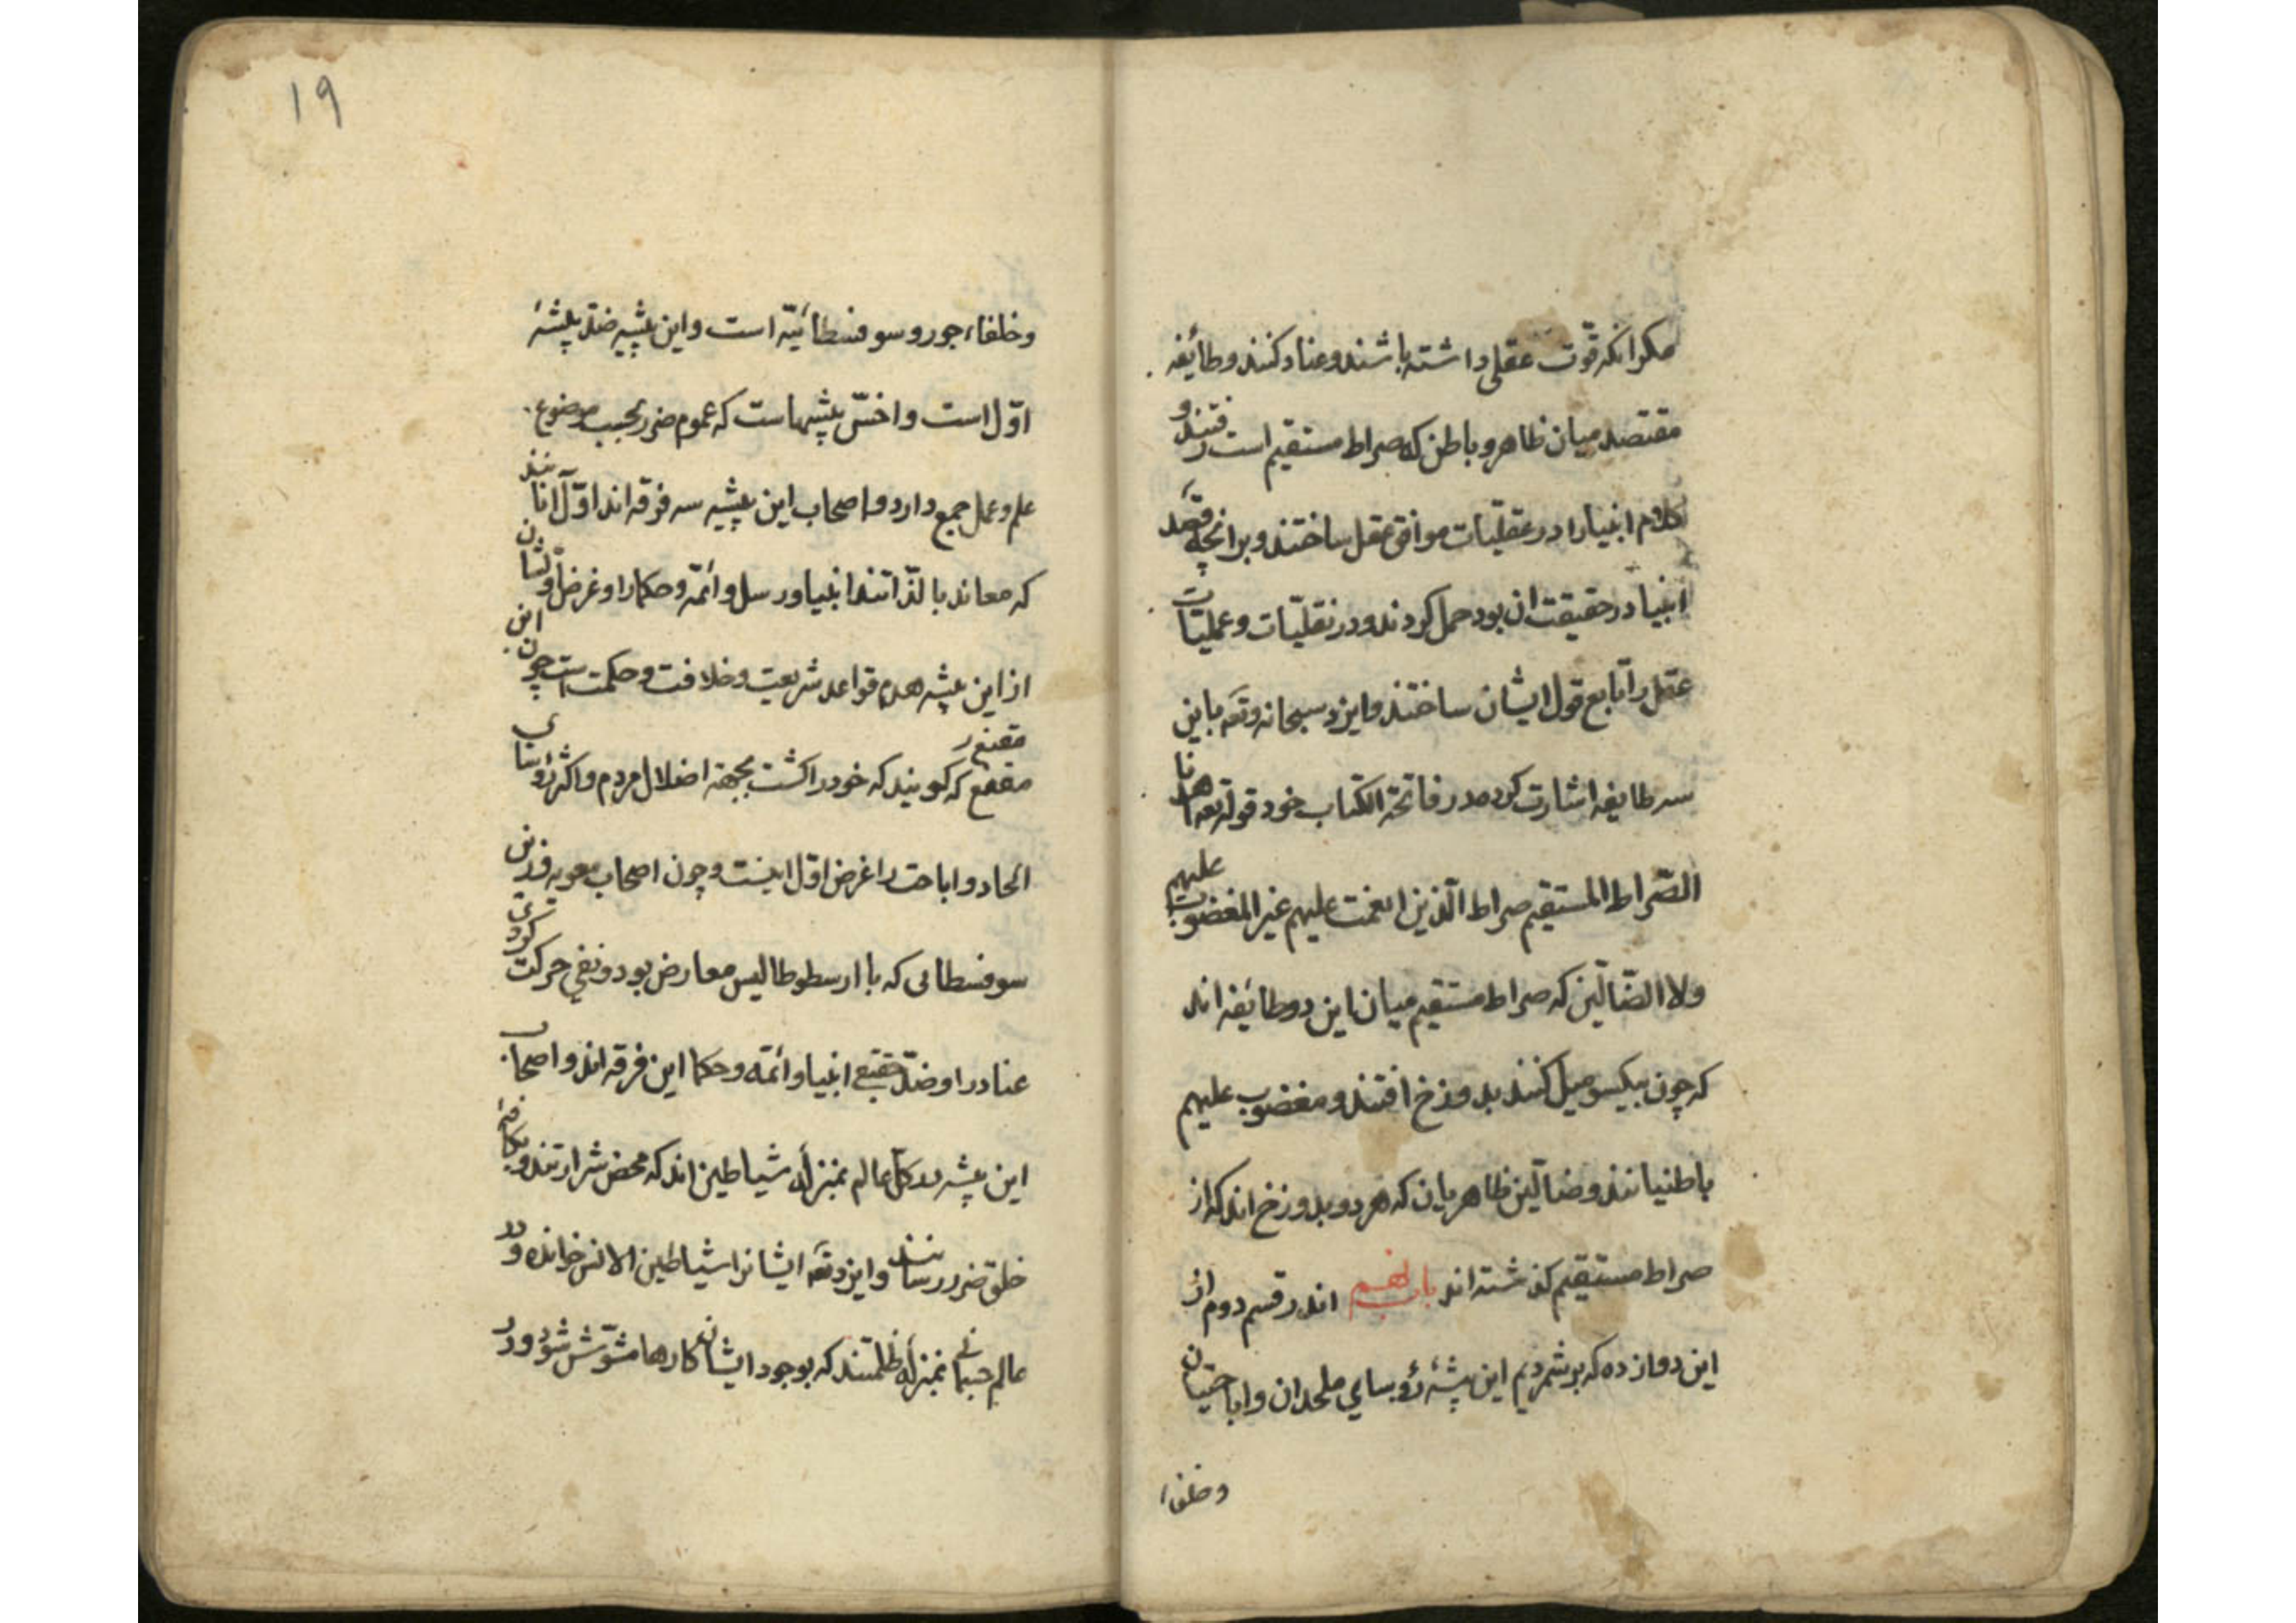 مکر انکه قوّت عقلی داشته باشند و عناد کنند و طائفه
مقتصد میان ظاهر و باطن که صراط مستقیم است رفتند و
کلام انبیا را در عقلیّات موافق عقل ساختند و بر انچه قصد
انبیا در حقیقت ان بود حمل کردند و در نقلیّات و عملیّات
عقل را تابع قول ایشان ساختند و ایزد سبحانه وتعه باین
سه طایفه اشارت کرده در فاتحة الکتاب خود قوله تعه اهدنا
الصّراط المستقیم صراط الّذین انعمت علیهم غیر المغضوب علیهم
ولا الضّالّین که صراط مستقیم میان این دو طائفه اند
که چون بیکسو میل کنند بدوزخ افتند و مغضوب علیهم
باطنیانند و ضالّین ظاهریان که هر دو بدوزخ اند که از
صراط مستقیم کذشته اند باب نهم اندر قسم دوم از
این دوازده که بر شمردیم این پیشهٔ رؤسای ملحدان و اباحتیان
وخلفاء
١٩
وخلفاء جور و سوفسطائیّه است و این پیشه ضدّ پیشهٔ
اوّل است و اخسّ پیشهاست که عموم ضرر بحسب موضوع
علم و عمل جمع دارد و اصحاب این پیشه سه فرقه اند اوّل آنانند
که معاند بالذّاتند انبیا ورسل و ائمّه و حکما را و غرض اوّلشان
از این پیشه هدم قواعد شریعت و خلافت و حکمت است چون ابن
مقنع که کویند که خود را کشت بجهة اضلال مردم و اکثر رؤسای
مقنع ر
الحاد و اباحت را غرض اوّل اینست و چون اصحاب معویه و زین
سوفسطائی که با ارسطوطالیس معارض بود و نفی حرکت کردی
عناد را و ضدّ حقیقی انبیا و ائمّه و حکما این فرقه اند و اصحاب
این پیشه در کلّ عالم بمنزلهٔ شیاطین اند که محض شرارتند و بکافهٔ
خلق ضرر رسانند و ایزد تعه ایشانرا شیاطین الانس خوانده و در
عالم جسمانی بمنزلهٔ ظلمتند که بوجود ایشان کارها مشوّش شود و در